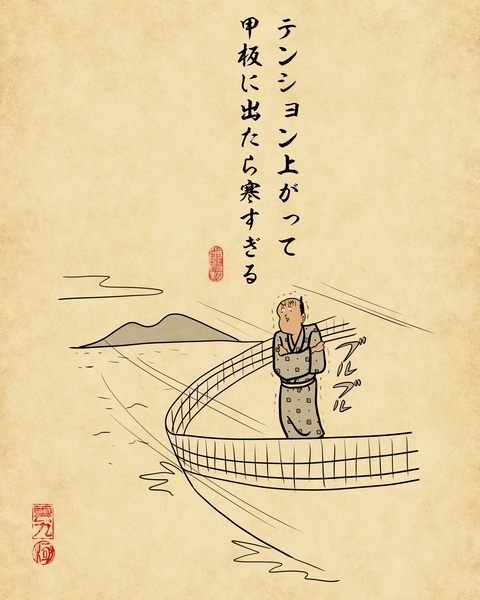 テンション上がって
甲板に出たら寒すぎる
ブルブル